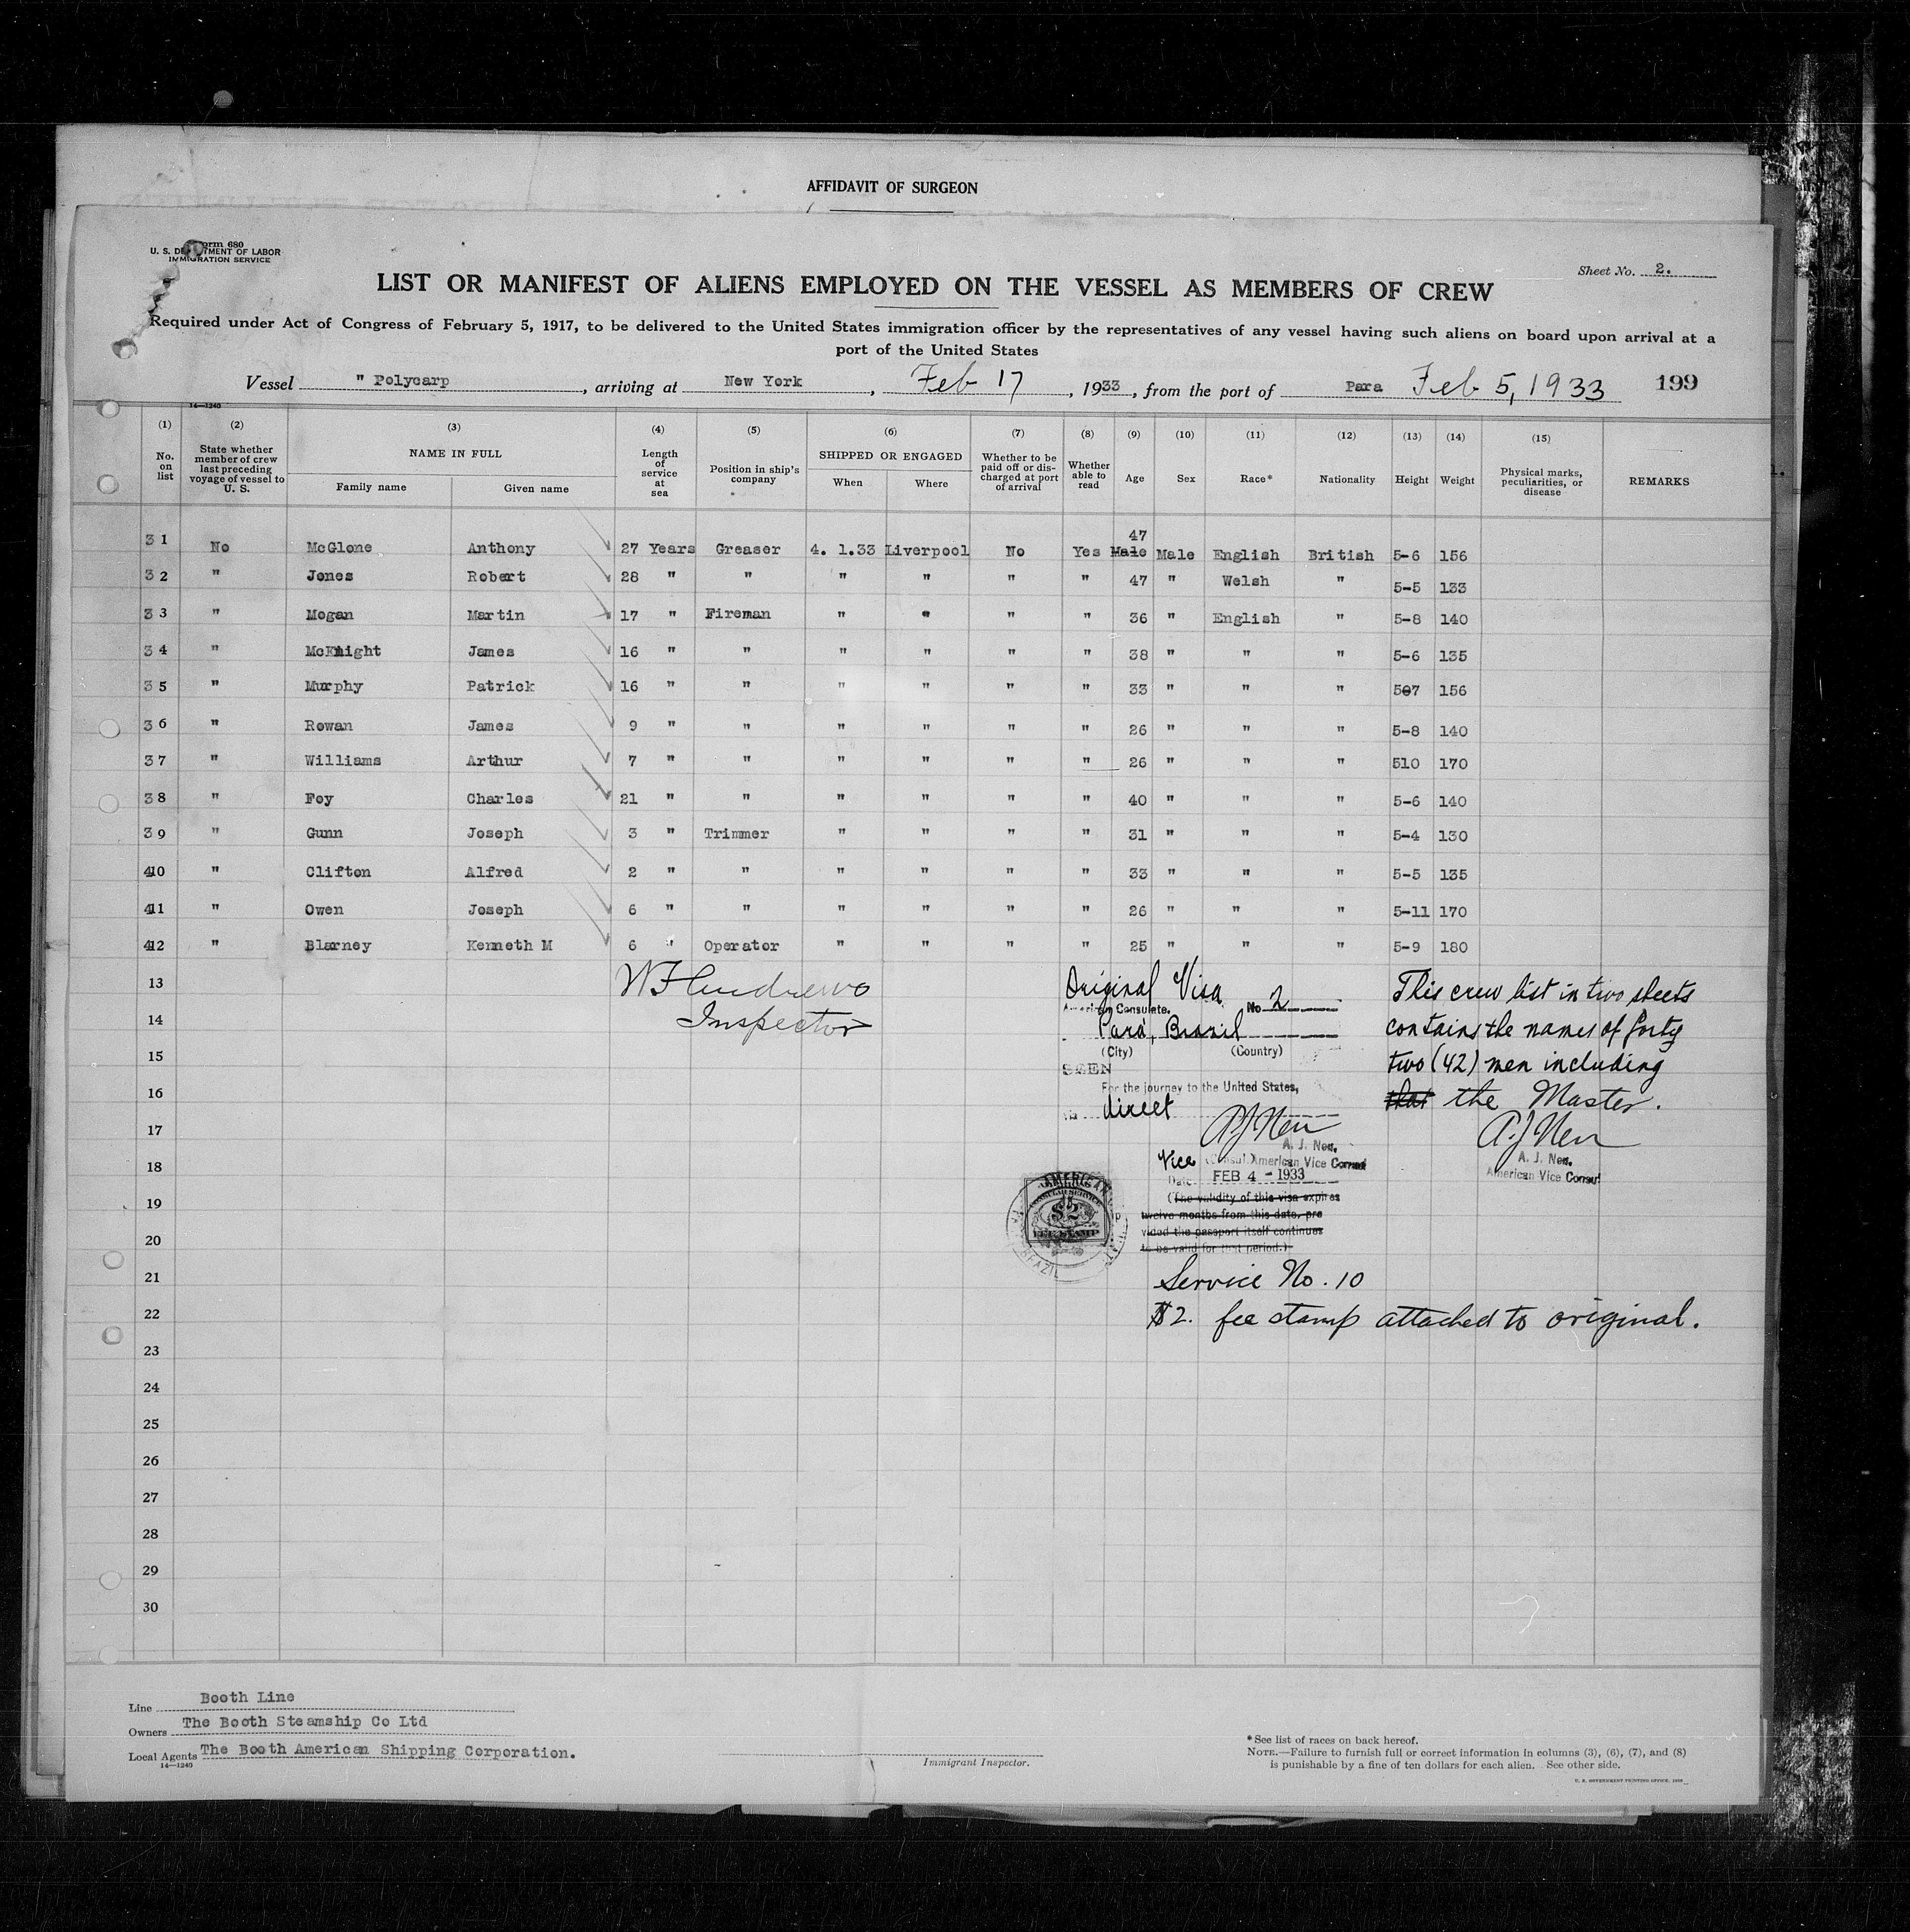 AFFIDAVIT OF SURGEON
Form 680
U. S. DEPARTMENT OF LABOR
IMMIGRATION SERVICE
Sheet No. 2.
LIST OR MANIFEST OF ALIENS EMPLOYED ON THE VESSEL AS MEMBERS OF CREW
Required under Act of Congress of February 5, 1917, to be delivered to the United States immigration officer by the representatives of any vessel having such aliens on board upon arrival at a
port of the United States
Vessel " Polycarp, arriving at New York, Feb 17, 1933, from the port of Para Feb 5, 1933 199
14—1240
(1) (2) (3) (4) (5) (6) (7) (8) (9) (10) (11) (12) (13) (14) (15)
No. on list
State whether member of crew last preceding voyage of vessel to U. S.
NAME IN FULL
Family name Given name
Length of service at sea
Position in ship's company
SHIPPED OR ENGAGED
When Where
Whether to be paid off or discharged at port of arrival
Whether able to read
Age Sex Race* Nationality Height Weight
Physical marks, peculiarities, or disease
REMARKS
31 No McGlone Anthony 27 Years Greaser 4. 1.33 Liverpool No Yes 47 Male Male English British 5-6 156
32 " Jones Robert 28 " " " " " " 47 " Welsh " 5-5 133
33 " Mogan Martin 17 " Fireman " " " " 36 " English " 5-8 140
34 " McKnight James 16 " " " " " " 38 " " " 5-6 135
35 " Murphy Patrick 16 " " " " " " 33 " " " 507 156
36 " Rowan James 9 " " " " " " 26 " " " 5-8 140
37 " Williams Arthur 7 " " " " " " 26 " " " 510 170
38 " Foy Charles 21 " " " " " " 40 " " " 5-6 140
39 " Gunn Joseph 3 " Trimmer " " " " 31 " " " 5-4 130
410 " Clifton Alfred 2 " " " " " " 33 " " " 5-5 135
411 " Owen Joseph 6 " " " " " " 26 " " " 5-11 170
412 " Blarney Kenneth M 6 " Operator " " " " 25 " " " 5-9 180
13
14
15
16
17
18
19
20
21
22
23
24
25
26
27
28
29
30
W F Andrews
Inspector
Original Visa
American Consulate. No 2
Pará, Brazil
(City) (Country)
SEEN
For the journey to the United States,
direct
A J Nen
A. J. Nen.
Vice Consul American Vice Consul
Date. FEB 4 - 1933
(The validity of this visa expires
twelve months from this date, pro
vided the passport itself continues
to be valid for that period.)
AMERICAN
CONSULAR SERVICE
$2
FEE STAMP
BRAZIL
Service No. 10
$2. fee stamp attached to original.
This crew list in two sheets
contains the names of forty
two (42) men including
that the Master.
A J Nen
A. J. Nen.
American Vice Consul
Line Booth Line
Owners The Booth Steamship Co Ltd
Local Agents The Booth American Shipping Corporation.
14—1240
Immigrant Inspector.
*See list of races on back hereof.
NOTE.—Failure to furnish full or correct information in columns (3), (6), (7), and (8)
is punishable by a fine of ten dollars for each alien. See other side.
U. S. GOVERNMENT PRINTING OFFICE